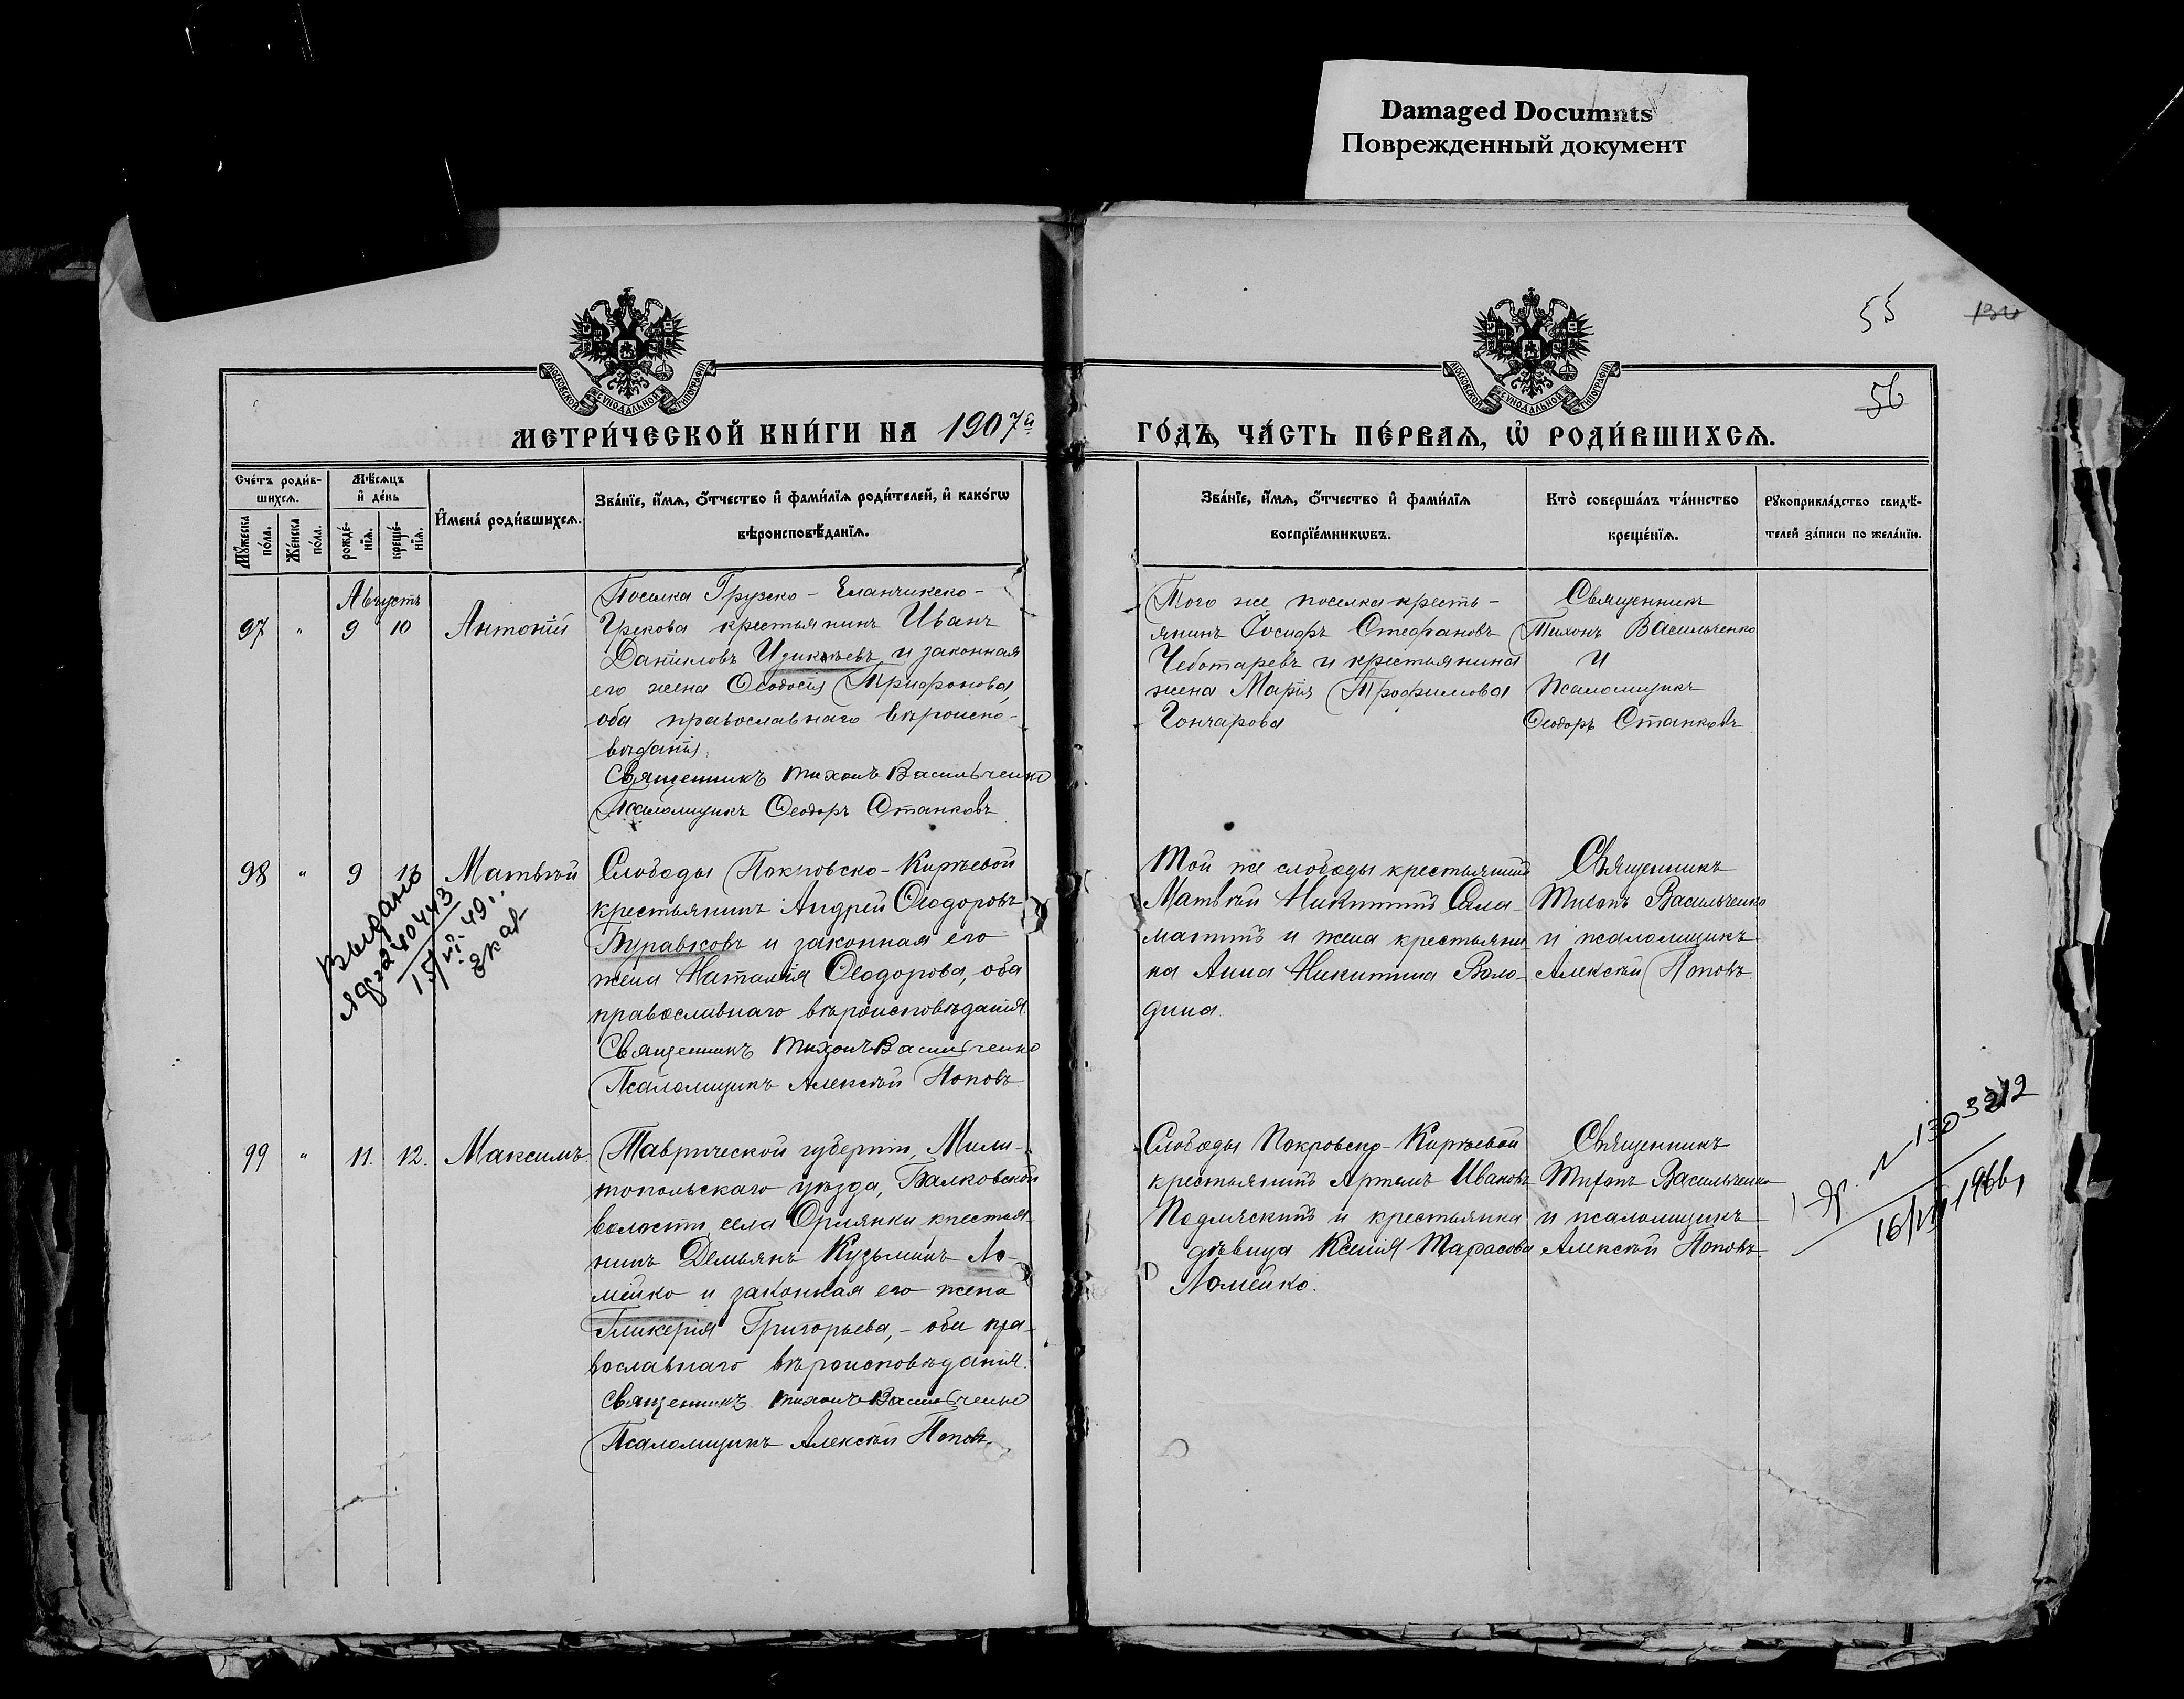 Damaged Documnts
Поврежденный документ
55
56
МОСКОВСКОЙ СѴНОДАЛЬНОЙ ТИПОГРАФІИ
МОСКОВСКОЙ СѴНОДАЛЬНОЙ ТИПОГРАФІИ
МЕТРИ́ЧЕСКОЙ КНИ́ГИ НА 1907й
ГО́ДЪ, ЧА́СТЬ ПЕ́РВАѦ, Ѡ҆ РОДИ́ВШИХСѦ.
Сче́тъ роди́в-
шихсѧ.
Мѣ́сѧцъ
и҆ де́нь
Мꙋ́жеска
по́ла.
Же́нска
по́ла.
рожде́-
нїѧ.
креще́-
нїѧ.
И҆мена̀ роди́вшихсѧ.
Зва́нїе, и҆́мѧ, ѻ҆́тчество и҆ фамѝлїѧ роди́телей, и҆ како́гѡ
вѣроисповѣ́данїѧ.
Зва́нїе, и҆́мѧ, ѻ҆́тчество и҆ фами́лїѧ
воспрїе́мникѡвъ.
Кто̀ соверша́лъ та́инство
креще́нїѧ.
Рꙋкоприкла́дство свидѣ́-
телей за́писи по жела́нїю.
Августъ
97 " 9 10 Антоній
Поселка Грузско-Еланчикско-
Грекова крестьянинъ Иванъ
Даниловъ и законная
его жена Ѳеодосія Трифонова,
оба православнаго вѣроиспо-
вѣданія.
Священникъ Тихонъ Васильченко
Псаломщикъ Ѳеодоръ Станковъ
Того же поселка кресть-
янинъ Іосифъ Стефановъ
Чеботаревъ и крестьянина
жена Марія Трофимова
Гончарова
Священникъ
Тихонъ Васильченко
и
Псаломщикъ
Ѳеодоръ Станковъ
98 " 9 Матѳей
Выдано
240443
Слободы Покровско-Кирѣевой
крестьянинъ Андрей Ѳеодоровъ
Журавковъ и законная его
жена Наталія Ѳеодорова, оба
православнаго вѣроисповѣданія.
Священникъ Тихонъ Васильченко
Псаломщикъ Алексѣй Поповъ
Той же слободы крестьянинъ
Матѳей Никитинъ Сала-
матинъ и жена крестьяни-
на Анна Никитина Воло-
дина.
Священникъ
Тихонъ Васильченко
и псаломщикъ
Алексѣй Поповъ
99 " 11. 12. Максимъ.
Таврической губерніи, Мели-
топольскаго уѣзда, Балковской
волости, села Орлянки крестья-
нинъ Демьянъ Кузьминъ Ло-
мейко и законная его жена
Гликерія Григорьева, - оба пра-
вославнаго вѣроисповѣданія.
Священникъ Тихонъ Васильченко
Псаломщикъ Алексѣй Поповъ
Слободы Покровско-Кирѣевой
крестьянинъ Артемъ Ивановъ
Подлѣскинъ и крестьянка
дѣвица Ксенія Тарасова
Ломейко.
Священникъ
Тихонъ Васильченко
и псаломщикъ
Алексѣй Поповъ